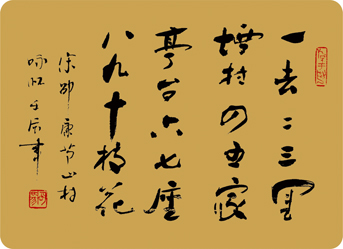 一去二三里
煙村四五家
亭台六七座
八九十枝花
宋邵康节山村
咏怀壬辰年